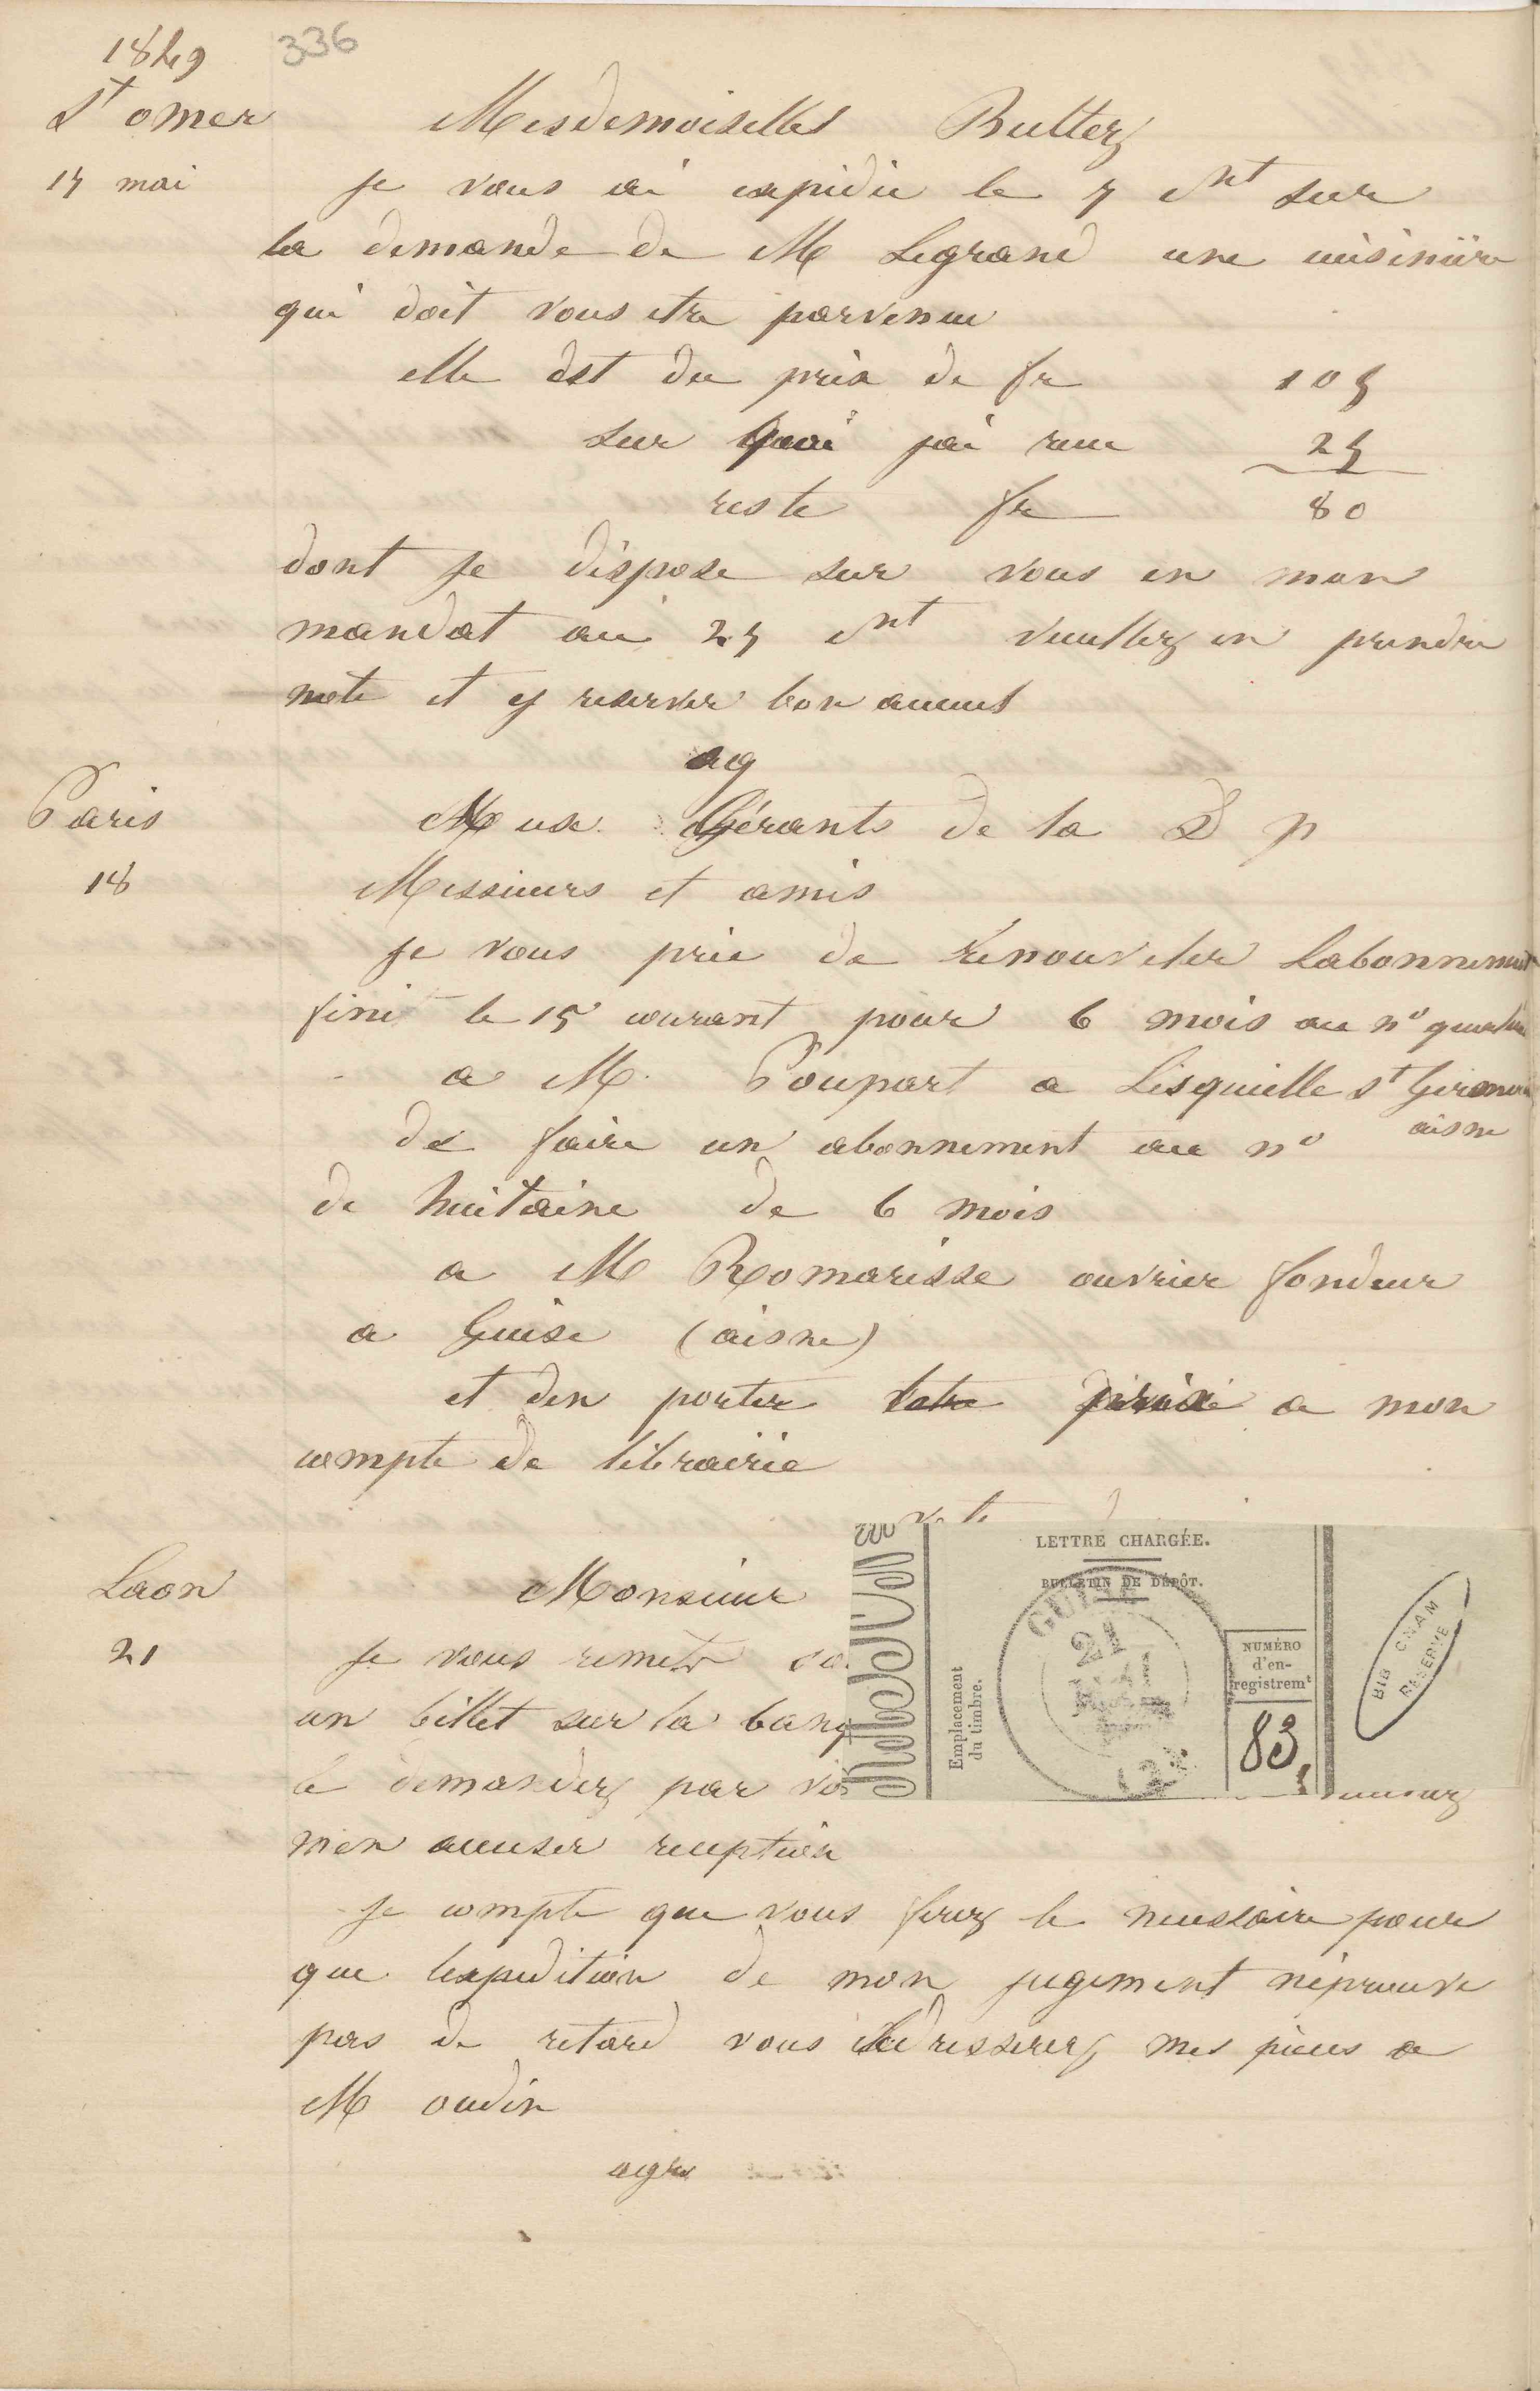 1849 336
St omer Mesdemoiselles Butterz
15 mai je vous ai expidie le 5 ct sur
la demande de M Legrand une cuisiniere
qui doit vous etre parvenue
elle est du prix de fr 105
sur quoi jai recu 25
reste fr 80
dont je dispose sur vous en mon
mandat au 25 ct veuillez en prendre
note et y reserver bon acceuil
ag
Paris Mess Gérants de la D p
18 Messieurs et amis
je vous prie de renouveler labonnement
fini le 15 courant pour 6 mois au no
a M. Poupart a Lesquielle St Germain
aisne
de faire un abonnement au no
de huitaine de 6 mois
a M Romarisse ouvrier fondeur
a Guise (aisne)
et den porter le prix a mon
compte de librairie
Laon Monsieur
21 je vous remets
un billet sur la banq
le demandez par
men accuser reception
je compte que vous ferez le necessaire pour
que lexpedition de mon jugement neprouve
pas de retard vous adresserez mes pieces a
M oudin
agr
LETTRE CHARGÉE.
BULLETIN DE DÉPÔT.
GUISE
21
MAI
Emplacement
du timbre.
NUMÉRO
d'en-
registremt
83
BIB CNAM
RESERVE